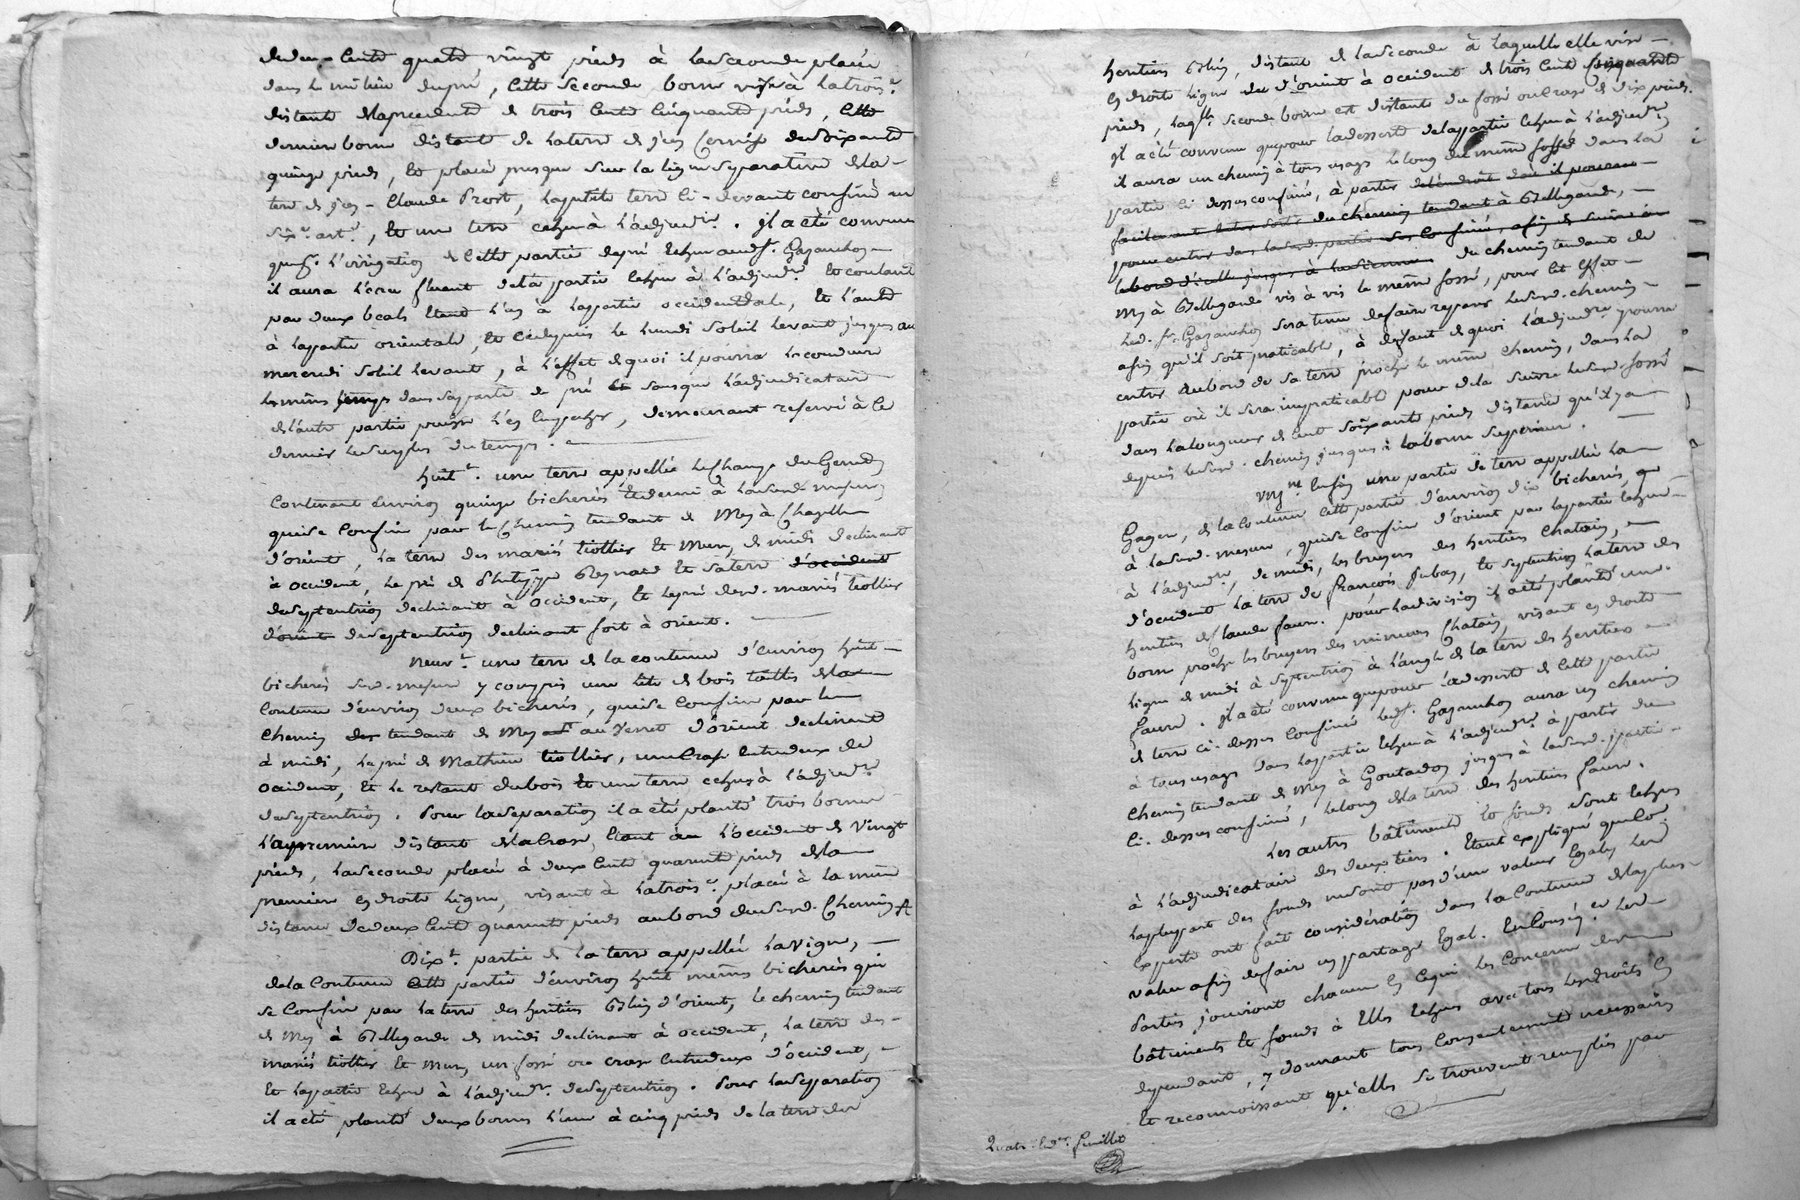 de deux cents quatre vingt pieds à la seconde placée
dans le milieu du pré, cette seconde borne vise à la trois.e
distante de la precedente de trois cents cinquante pieds, cette
derniere borne distante de la terre de de soixante
quinze pieds, et placée presque sur la ligne separative de la
terre de Claude Prost, la petite terre ci-devant confinée au
six.e art.e, et une terre echue à l'adjud.re. Il a été convenu
que p.r l'irrigation de cette partie de pré echue aud. s.r Gagnanchon
il aura l'eau fluant de la partie echue à l'adjud.re et coulant
par deux beals l'un à la partie occidentale, et l'autre
à la partie orientale, et ce depuis le lundi soleil levant jusques au
mercredi soleil levant, à l'effet de quoi il pourra la conduire
le même temps dans sa partie de pré sans que l'adjudicataire
de l'autre partie puisse l'en empecher, demeurant reservé à ce
dernier le surplus du temps.
huit.e une terre appellée le Champ du
contenant environ quinze bicherées et demie à lad. mesure
qui se confine par le chemin tendant de Mey à Chazelle
d'orient, la terre des mariés tiollier et Mure, de midi declinant
à occident, le pré de Philippe Reynard et sa terre d'occident
de septentrion declinant à occident, et le pré desd. mariés tiollier
d'orient de septentrion declinant fort à orient.
Neuv.e une terre de la contenue d'environ huit
bicherées susd. mesure y compris une tête de bois taillis de la
contenue d'environ deux bicherées, qui se confine par le
chemin tendant de Mey au Verret d'orient declinant
à midi, le pré de Mathieu tiollier, une crase entredeux de
occident, et le restant du bois et une terre echus à l'adjud.re
de septentrion. Pour la separation il a été planté trois bornes
la premiere distante de la crase étant à l'occident de vingt
pieds, la seconde placée à deux cents quarante pieds de la
premiere en droite ligne, visant à la trois.e placée à la même
distance de deux cents quarante pieds au bord dudsusd. chemin
Dix.e partie de la terre appellée la Vigne,
de la contenue cette partie d'environ huit mêmes bicherées qui
se confine par la terre des heritiers d'orient, le chemin tendant
de Mey à Bellegarde de midi declinant à occident, la terre des
mariés tiollier et Mure, un fossé ou crase entredeux d'occident,
et la partie echue à l'adjud.re de septentrion. Pour la separation
il a été planté deux bornes l'une à cinq pieds de la terre des
heritiers distante de la seconde à laquelle elle vise
en droite ligne d'orient à occident de trois cents cinquante
pieds, laq.lle seconde borne est distante du fossé ou crase de dix pieds.
Il a été convenu que pour la desserte de la partie echue à l'adjud.re
il aura un chemin à tous usages le long du même fossé dans la
partie ci dessus confinée, à partir de l'endroit d'où il pourra
facilement du chemin tendant à Bellegarde,
pour entrer dans lasusd. partie sus confinée, afin de suivre au
le bord d'icelle jusques à la sienne du chemin tendant de
Mey à Bellegarde vis à vis le même fossé, pour cet effet
led. s.r Gagnanchon sera tenu de faire reparer le susd. chemin
afin qu'il soit praticable, à defaut de quoi l'adjud.re pourra
entrer au bord de sa terre proche le même chemin, dans la
partie où il sera impraticable pour de là suivre le susd. fossé
dans la longueur de cent soixante pieds distance qu'il y a
depuis le susd. chemin jusques à la borne superieure.
enfin une partie de terre appellée la
Gagere, de la contenue cette partie d'environ dix bicherées,
à la susd. mesure, qui se confine d'orient par la partie echue
à l'adjud.re, de midi, les bruyeres des heritiers Chatain,
d'occident la terre de François Dubay, et septentrion la terre des
heritiers de Claude faure. pour la division il a été planté une
borne proche les bruyeres des mineurs Chatain, visant en droite
ligne de midi à septentrion à l'angle de la terre des heritiers
faure. Il a été convenu que pour la desserte de cette partie
de terre ci-dessus confinée led. s.r Gagnanchon aura un chemin
à tous usages dans la partie echue à l'adjud.re à partir du
chemin tendant de Mey à Goutardon jusques à la susd. partie
ci-dessus confinée, le long de la terre des heritiers faure.
Les autres bâtiments et fonds sont echus
à l'adjudicataire des deux tiers. étant expliqué que la
la pluspart des fonds n'étant pas d'une valeur egale, les
experts ont fait consideration dans la contenue de la plus
value afin de faire un partage egal. En conséq.ce les
parties jouiront chacune en ce qui les concerne des
bâtiments et fonds à elles echus avec tous les droits en
dependant, y donnant tous consentements necessaires
et reconnoissant qu'elles se trouvent remplies par
Quatr.e feuillet